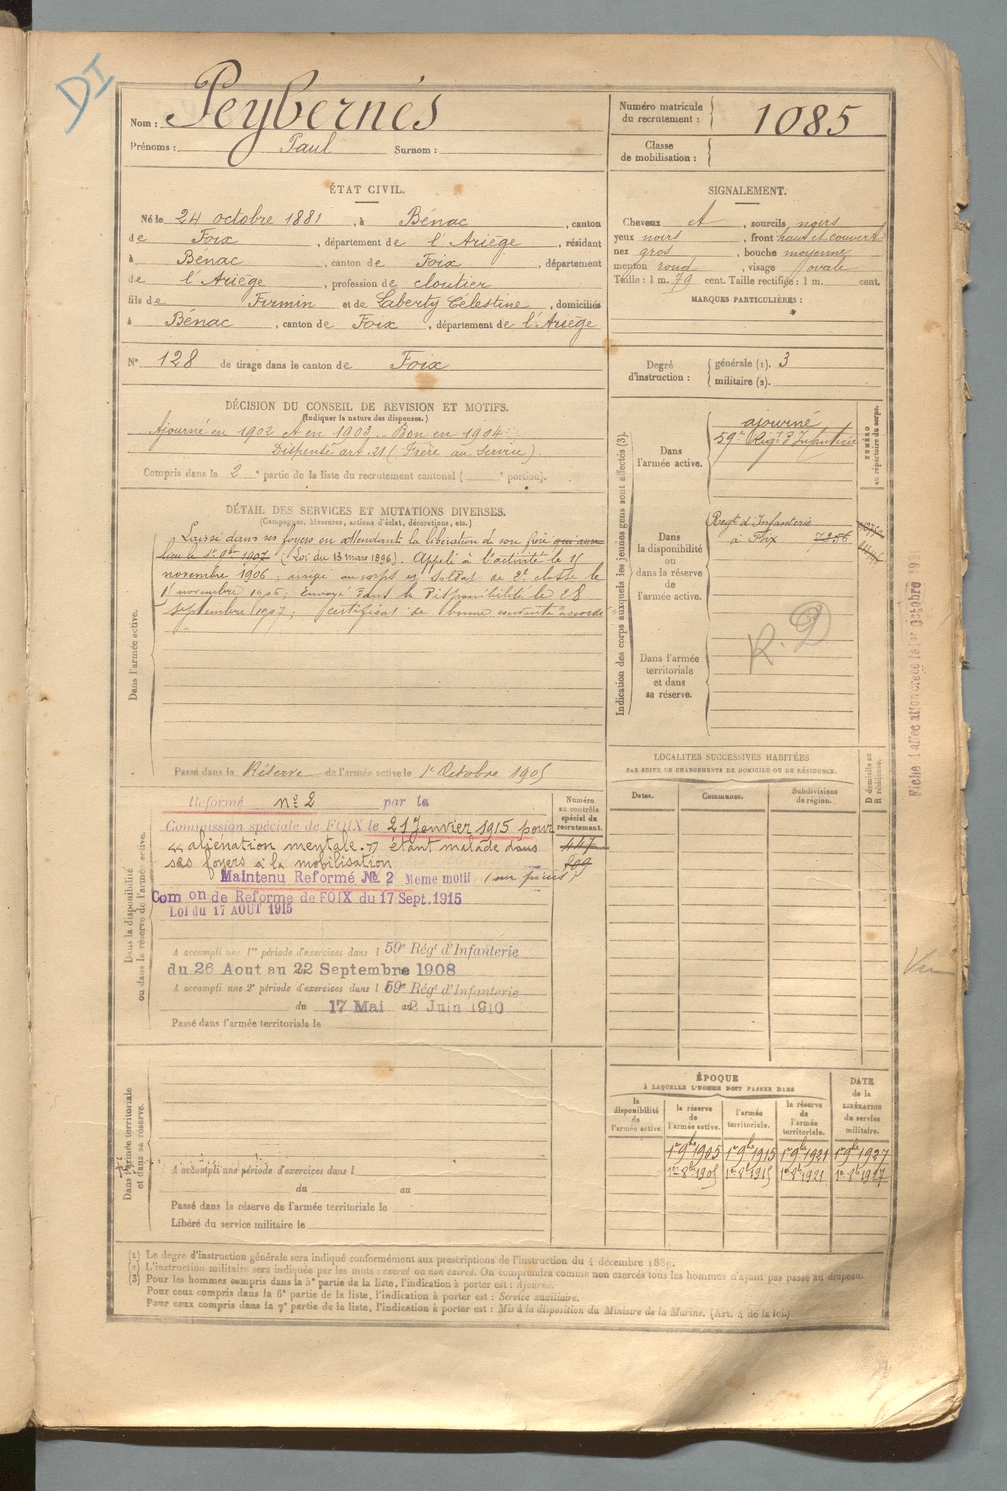 DI
Nom : Peybernès
Prénoms : Paul Surnom :
Numéro matricule
du recrutement : 1085
Classe
de mobilisation :
ÉTAT CIVIL.
Né le 24 octobre 1881, à Bénac, canton
de Foix, département de l'Ariège, résidant
à Bénac, canton de Foix, département
de l'Ariège, profession de cloutier
fils de Firmin et de Laberty Célestine, domiciliés
à Bénac, canton de Foix, département de l'Ariège
SIGNALEMENT.
Cheveux et, sourcils noirs
yeux noirs, front haut et couvert
nez gros, bouche moyenne
menton rond, visage ovale
Taille : 1 m. 79 cent. Taille rectifiée : 1 m. cent.
MARQUES PARTICULIÈRES :
N° 128 de tirage dans le canton de Foix
Degré
d'instruction :
générale (1). 3
militaire (2).
DÉCISION DU CONSEIL DE REVISION ET MOTIFS.
(Indiquer la nature des dispenses.)
Ajourné en 1902 et en 1903. Bon en 1904
Dispensé art. 21 (Frère au Service).
Compris dans la 2e partie de la liste du recrutement cantonal ( e portion).
DÉTAIL DES SERVICES ET MUTATIONS DIVERSES.
(Campagnes, blessures, actions d'éclat, décorations, etc.)
Dans l'armée active.
Laissé dans ses foyers en attendant la libération de son frère qui aura
lieu le 1er 1907 (Loi du 13 mars 1896). Appelé à l'activité le 15
novembre 1906; arrivé au corps et soldat de 2e classe le
novembre 1906; Envoyé dans la Disponibilité le 28
Septembre 1907; certificat de bonne conduite accordé
Passé dans la Réserve de l'armée active le 1er Octobre 1905
Indication des corps auxquels les jeunes gens sont affectés (3).
Dans
l'armée active.
ajourné
59e Régt d'Infanterie
NUMÉRO
au répertoire du corps.
Dans
la disponibilité
ou
dans la réserve
de
l'armée active.
Regt d'Infanterie
à Foix 7256
Dans l'armée
territoriale
et dans
sa réserve.
R. D
LOCALITÉS SUCCESSIVES HABITÉES
PAR SUITE DE CHANGEMENTS DE DOMICILE OU DE RÉSIDENCE.
Dates.
Communes.
Subdivisions
de région.
D domicile ou
R résidence.
Dans la disponibilité
ou dans la réserve de l'armée active.
Numéro
au contrôle
spécial du
recrutement.
Réformé n° 2 par la
Commission spéciale de FOIX le 21 Janvier 1915 pour
"aliénation mentale." étant malade dans
ses foyers à la mobilisation
Maintenu Reformé № 2 Meme motif (sur pièces)
Com on de Reforme de FOIX du 17 Sept. 1915
Loi du 17 AOUT 1915
A accompli une 1re période d'exercices dans l 59e Régt d'Infanterie
du 26 Aout au 22 Septembre 1908
A accompli une 2e période d'exercices dans l 59e Régt d'Infanterie
du 17 Mai au 2 Juin 1910
Passé dans l'armée territoriale le
Dans l'armée territoriale
et dans sa réserve.
A accompli une période d'exercices dans l
du au
Passé dans la réserve de l'armée territoriale le
Libéré du service militaire le
ÉPOQUE
À LAQUELLE L'HOMME DOIT PASSER DANS
la
disponibilité
de
l'armée active.
la réserve
de
l'armée active.
l'armée
territoriale.
la réserve
de
l'armée
territoriale.
DATE
de la
LIBÉRATION
du service
militaire.
1er 9bre 1905 1er 9bre 1915 1er 9bre 1921 1er 9bre 1927
1er 8bre 1905 1er 8bre 1915 1er 8bre 1921 1er 8bre 1927
Vu
(1) Le degré d'instruction générale sera indiqué conformément aux prescriptions de l'instruction du 4 décembre 1889.
(2) L'instruction militaire sera indiquée par les mots : exercé ou non exercé. On comprendra comme non exercés tous les hommes n'ayant pas passé au drapeau.
(3) Pour les hommes compris dans la 5e partie de la liste, l'indication à porter est : Ajourné.
Pour ceux compris dans la 6e partie de la liste, l'indication à porter est : Service auxiliaire.
Pour ceux compris dans la 7e partie de la liste, l'indication à porter est : Mis à la disposition du Ministre de la Marine. (Art. 4 de la loi.)